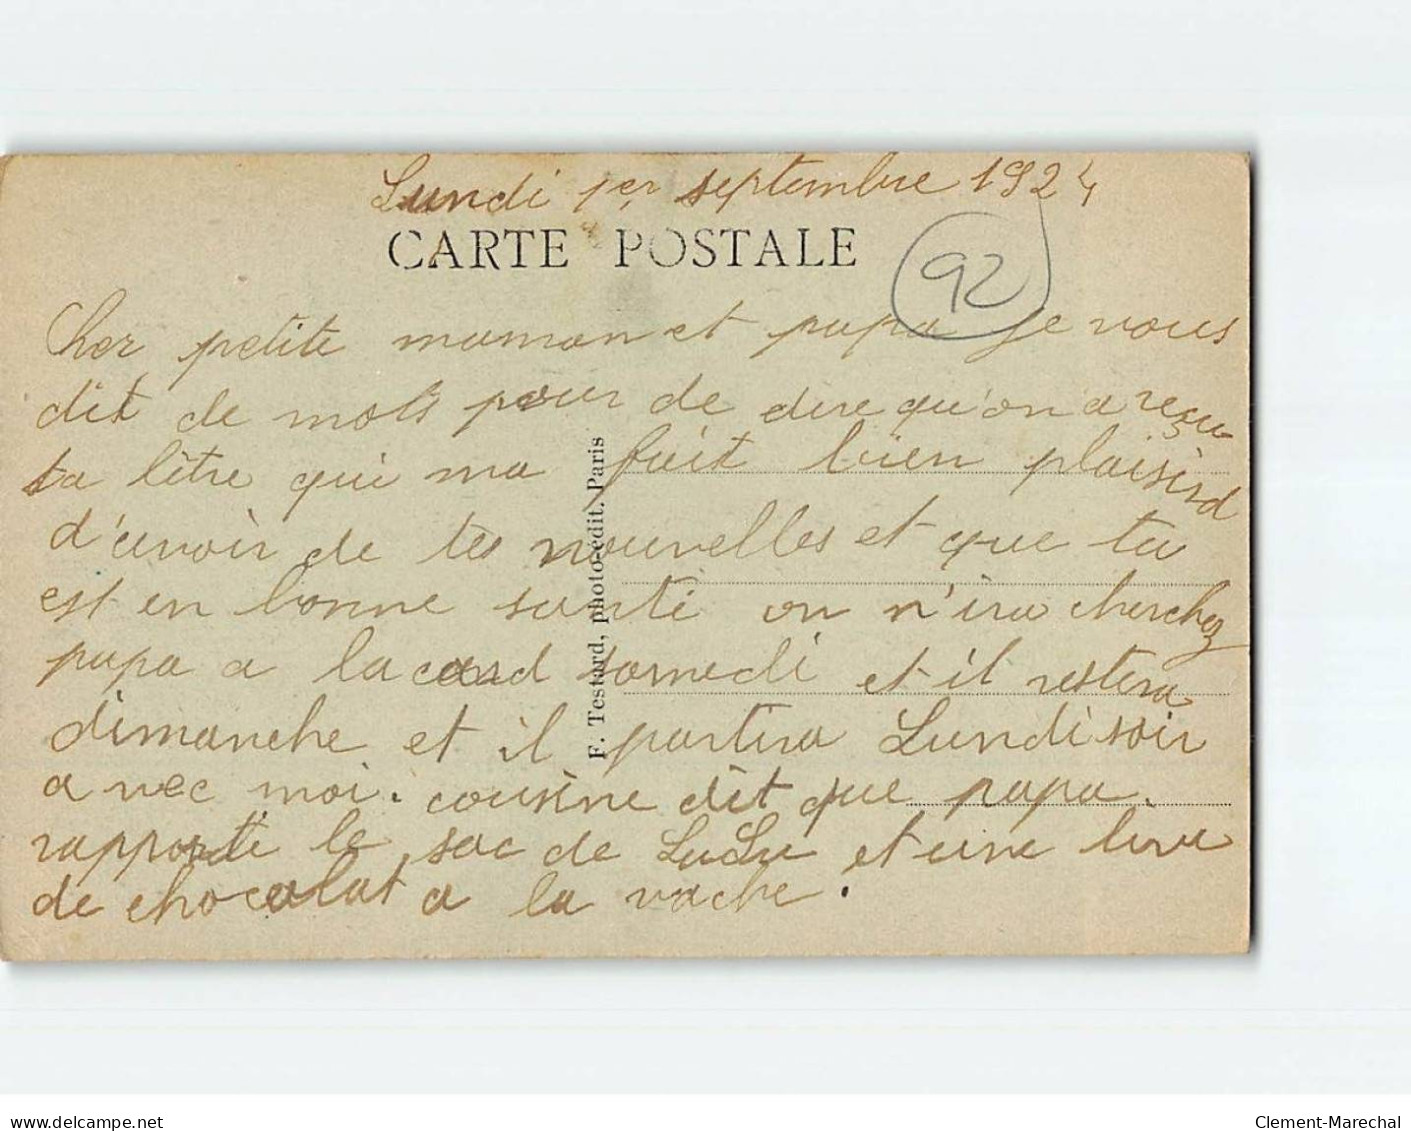 Lundi 1er septembre 1924
CARTE POSTALE
92
Cher petite maman et papa je vous
dit de mots pour de dire qu'on a reçu
ta lètre qui ma fait bien plaisird
d'avoir de tes nouvelles et que tu
est en bonne santé on n'ira cherchez
papa a la samedi et il restera
dimanche et il partira Lundi soir
a vec moi. cousine dit que papa
rapporte le sac de LuLu et une livre
de chocolat a la vache.
F. Testard, photo-édit. Paris
www.delcampe.net
Clement-Marechal